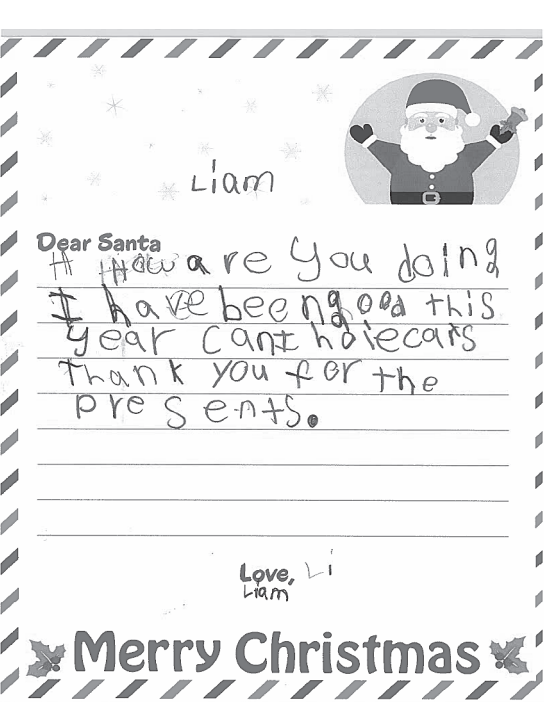 Liam
Dear Santa
Hi How are you doing
I have been good this
year can I hotecars
thank you for the
presents.
Love, Li
Liam
Merry Christmas